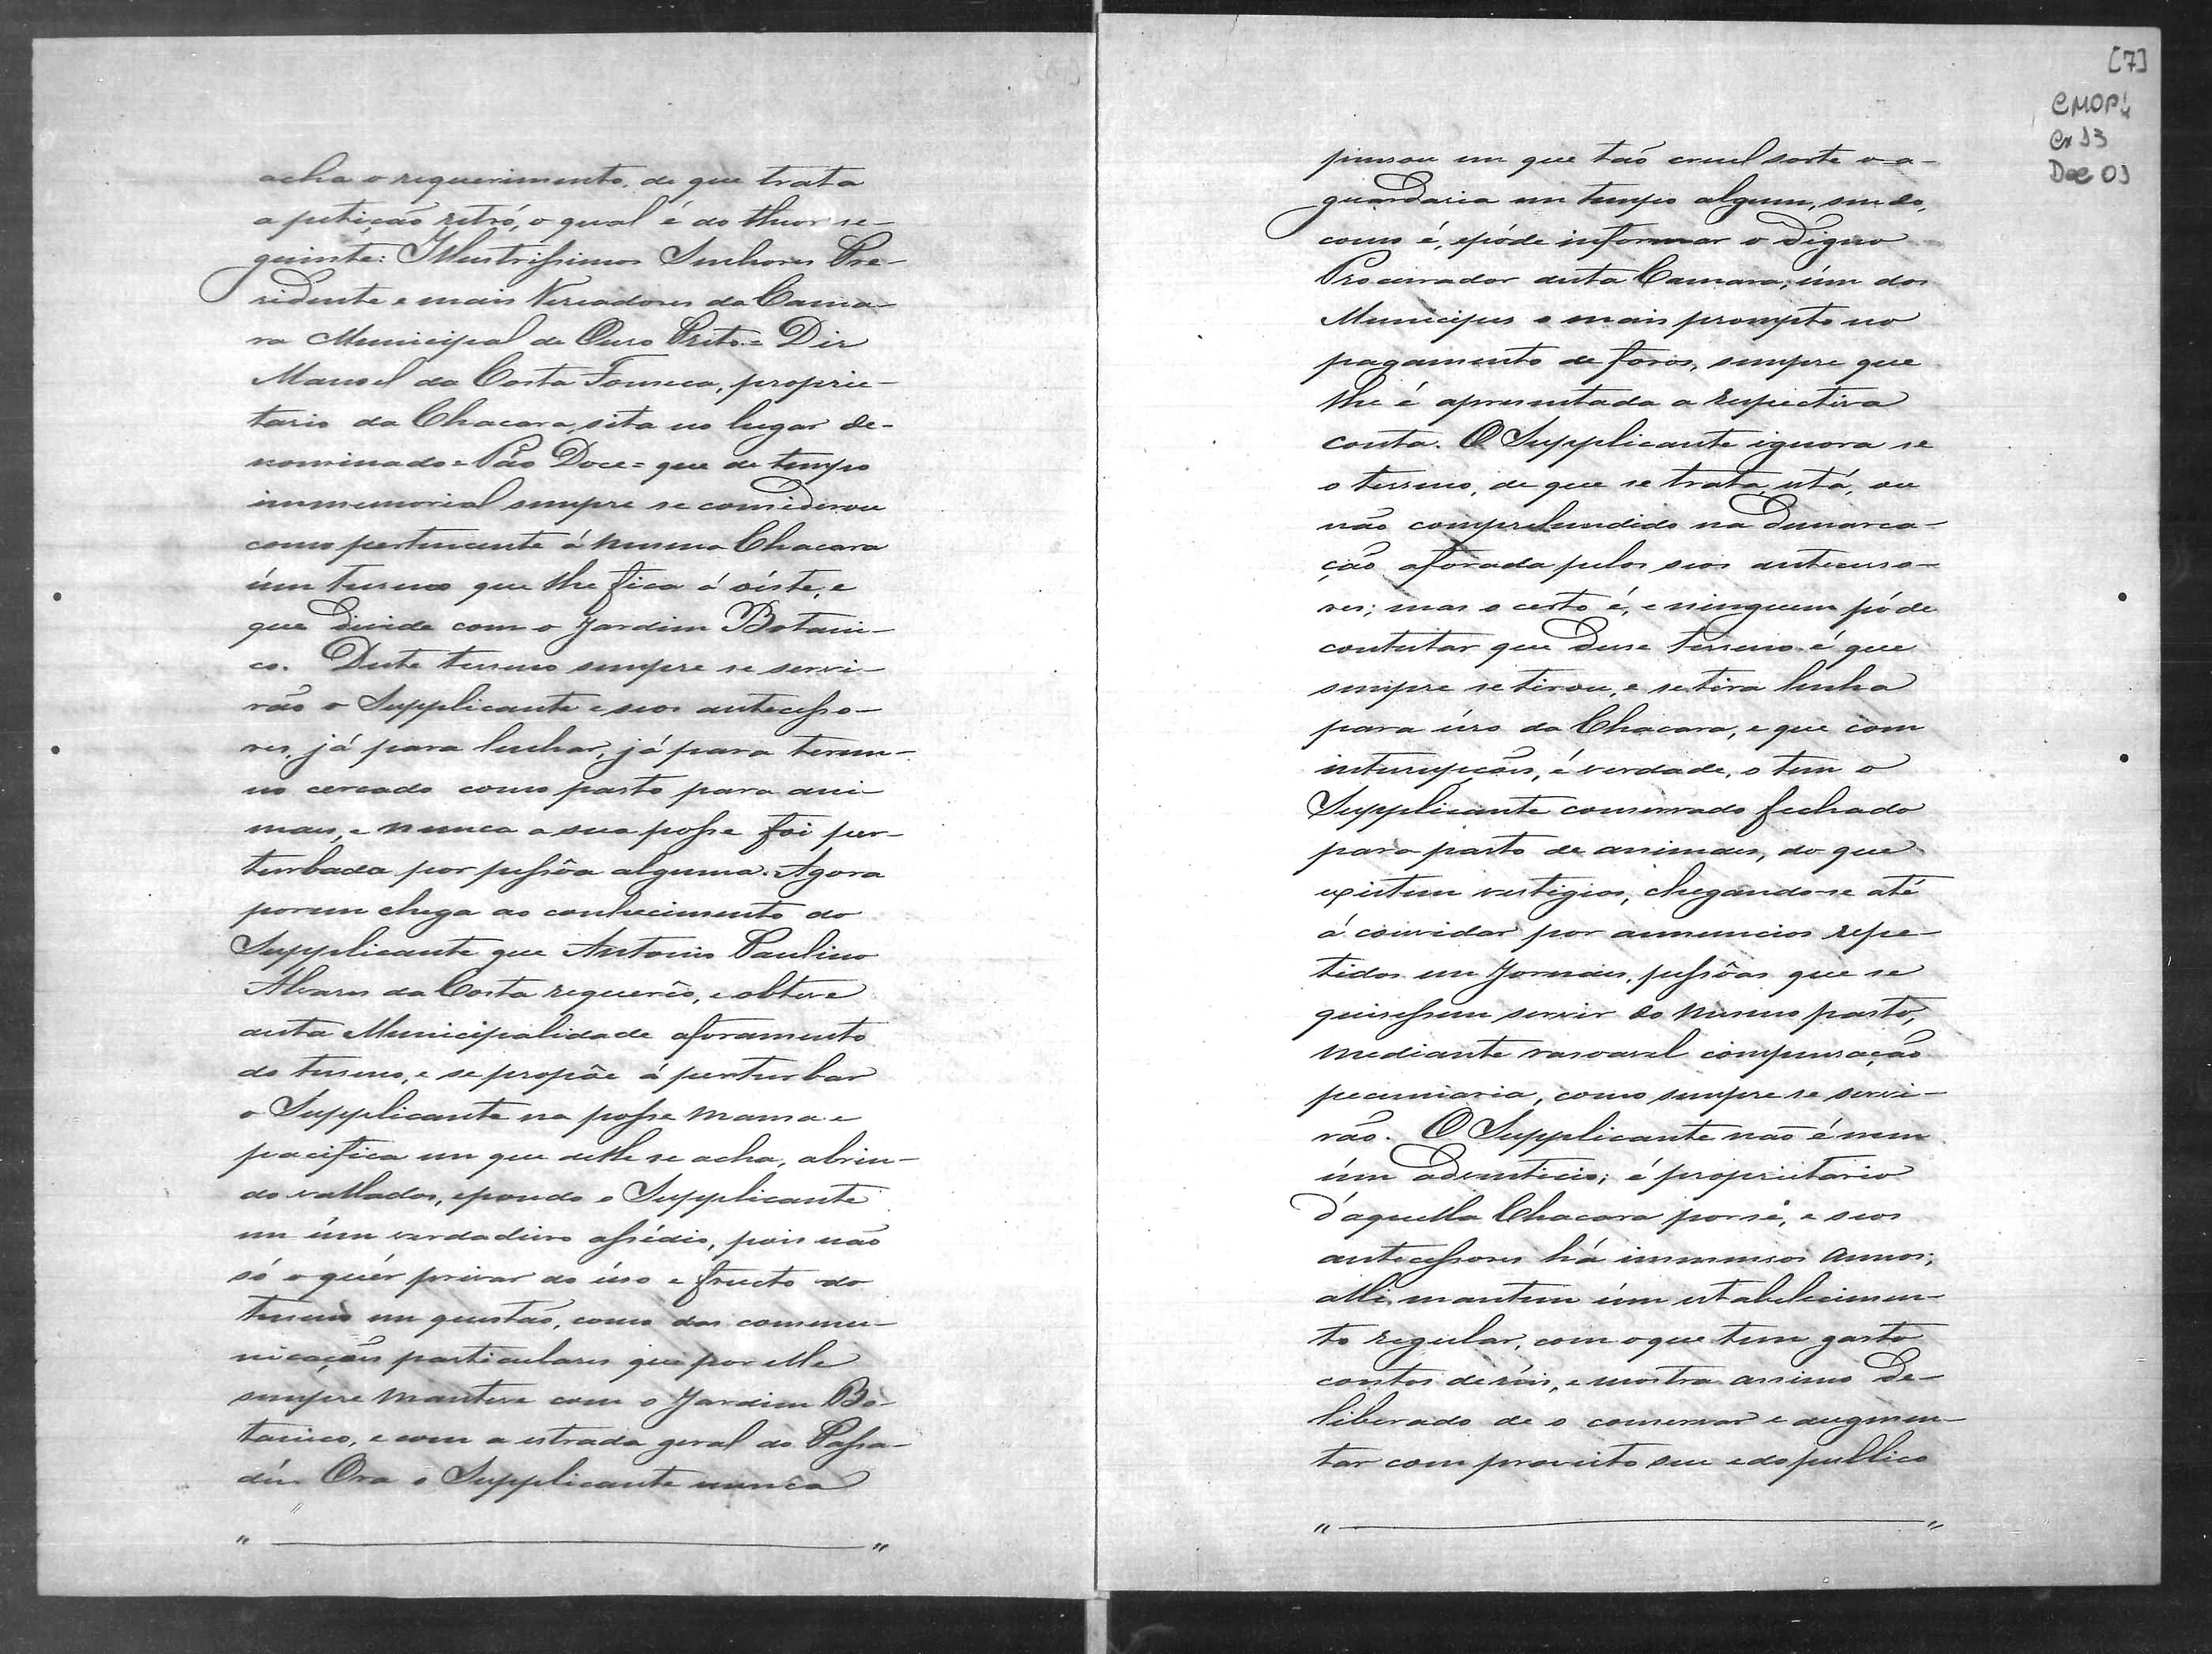 acha o requerimento, de que trata
a petição retró, o qual é do theor se-
guinte: Illustrissimos Senhores Pre-
sidente e mais Vereadores da Cama-
ra Municipal de Ouro Preto = Diz
Manoel da Costa Fonseca, proprie-
tario da Chacara, sita no lugar de-
nominado = Páo Doce = que de tempo
immemorial sempre se considerou
como pertencente á mesma Chacara
úm terreno que lhe fica á oéste, e
que divide com o Jardim Botani-
co. Deste terreno sempre se servi-
rão o Supplicante e seos antecesso-
res, já para lenhar, já para terre-
no cercado como pasto para ani-
maes, e nunca a sua posse foi per-
turbada por pessôa alguma. Agora
porem chega ao conhecimento do
Supplicante que Antonio Paulino
Alvares da Costa requerêo, e obteve
desta Municipalidade aforamento
do terreno, e se propõe á perturbar
o Supplicante na posse mansa e
pacifica em que delle se acha, abrin-
do vallados, e pondo o Supplicante
em úm verdadeiro assédio, pois não
só o quér privar do úso e fructo do
terreno em questão, como das commu-
nicações particulares que por elle
sempre manteve com o Jardim Bo-
tanico, e com a estrada geral do Passa-
déz. Ora o Supplicante nunca
[7]
CMOP
Cx 13
Doc 03
pensou em que tão cruel sorte o a-
guardaria em tempo algum, sendo,
como é, e póde informar o digno
Procurador desta Camara, úm dos
Municipes o mais prompto no
pagamento de foros, sempre que
lhe é apresentada a respectiva
conta. O Supplicante ignora se
o terreno, de que se trata, está, ou
não comprehendido na demarca-
ção aforada pelos seos antecesso-
res; mas o certo é, e ninguem póde
contestar que desse terreno é que
sempre se tirou, e se tira lenha
para úso da Chacara, e que com
interrupções, é verdade, o tem o
Supplicante conservado fechado
para pasto de animaes, do que
existem vestigios, chegando-se até
á convidar por annuncios repe-
tidos em Jornaes, pessôas que se
quisessem servir do mesmo pasto,
mediante rasoavel compensação
pecuniaria, como sempre se servi-
rão. O Supplicante não é nem
úm adventicio; é proprietario
d'aquella Chacara por sí, e seos
antecessores há immensos annos;
alli mantem úm estabelecimen-
to regular, com o que tem gasto
contos de réis, e mostra animo de-
liberado de o conservar e augmen-
tar com proveito seu e do publico